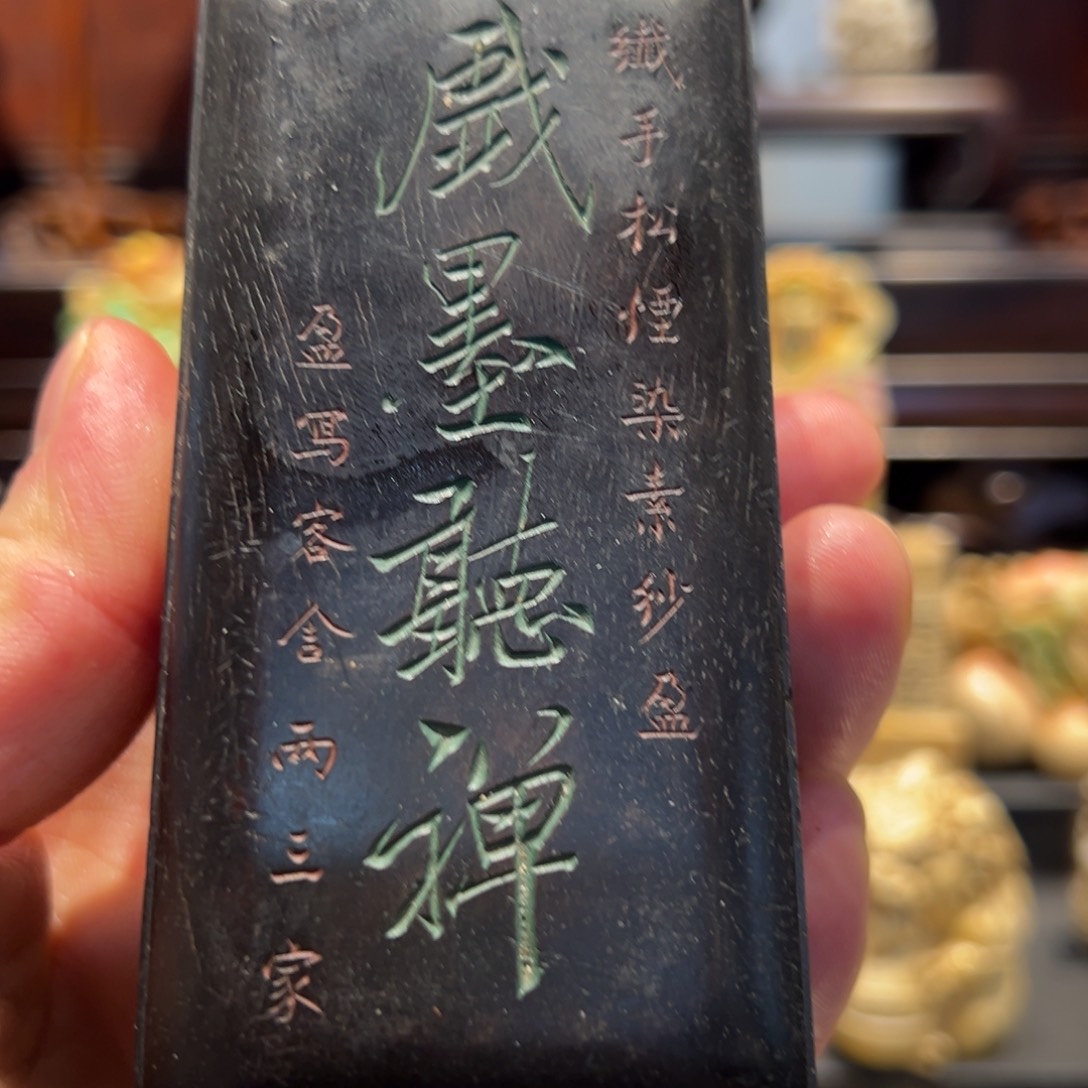 纖手松煙染素紗盈
戲墨聽禪
盈寫客舍兩三家